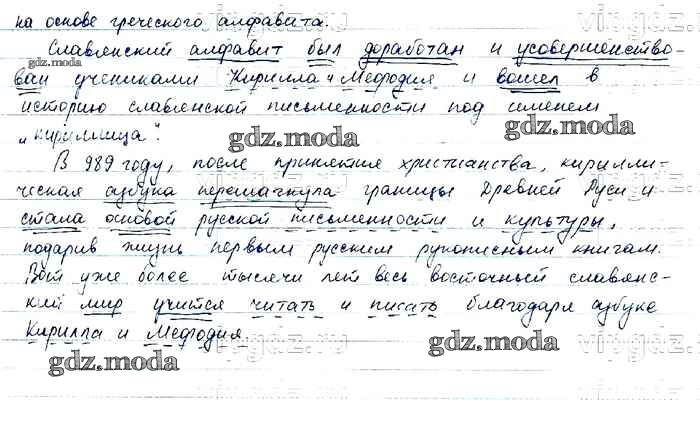 на основе греческого алфавита.
Славянский алфавит был доработан и усовершенство-
ван учениками Кирилла и Мефодия и вошел в
историю славянской письменности под именем
„кириллица".
В 989 году, после принятия христианства, кирилли-
ческая азбука перешагнула границы Древней Руси и
стала основой русской письменности и культуры,
подарив жизнь первым русским рукописным книгам.
Вот уже более тысячи лет весь восточный славянс-
кий мир учится читать и писать благодаря азбуке
Кирилла и Мефодия
gdz.moda
gdz.moda
gdz.moda
gdz.moda
gdz.moda